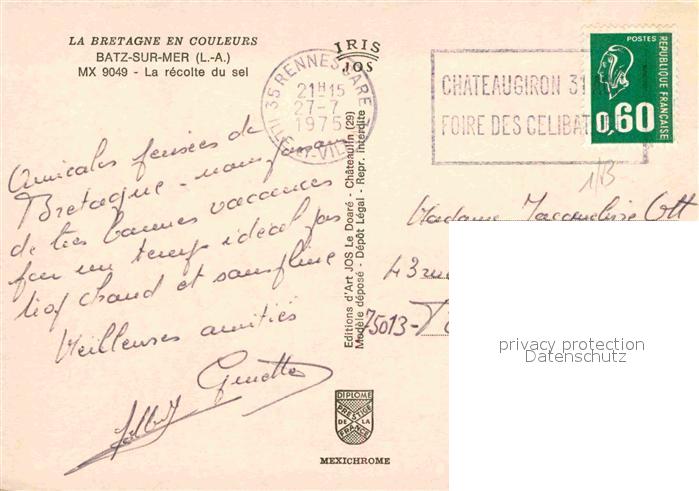 LA BRETAGNE EN COULEURS
BATZ-SUR-MER (L.-A.)
MX 9049 - La récolte du sel
IRIS
JOS
35 RENNES GARE
21H15
27-7
1975
ILLE-ET-VIL
CHATEAUGIRON 31
FOIRE DES CELIBAT
POSTES
REPUBLIQUE FRANÇAISE
0,60
1/B
Amicales pensées de
Bretagne - nous
de très bonnes vacances
par un temps idéal pas
trop chaud et sans pluie
Meilleures amitiés
Ginette
Editions d'Art JOS Le Doaré - Châteaulin (29)
Modèle déposé - Dépôt Légal - Repr. Interdite
Madame Jacqueline Ott
43 rue
75013-
privacy protection
Datenschutz
DIPLOME
PRESTIGE
DE LA
FRANCE
MEXICHROME